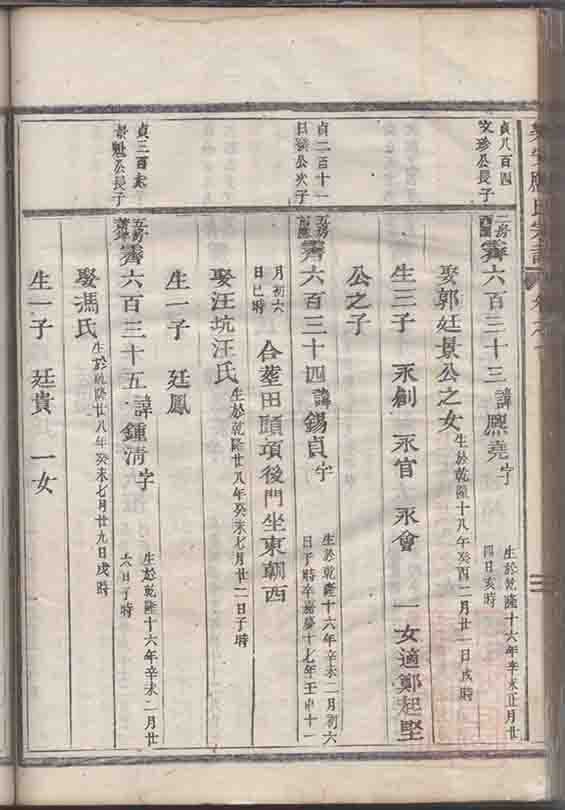 貞八百四
文珍公長子
二房
霽六百三十三 諱熙堯 字
生於乾隆十六年辛未正月廿
四日亥時
娶郭廷景公之女
生於乾隆十八年癸酉二月廿一日戌時
生三子 永創 永官 永會 一女適鄭起堅
公之子
貞二百十一
公次子
五房
霽六百三十四 諱錫貞 字
生於乾隆十六年辛未二月初六
日子時卒嘉慶十七年壬申十一
月初六
日巳時
合塟田頭項後門坐東朝西
娶汪坑汪氏
生於乾隆廿八年癸未七月廿二日子時
生一子 廷鳳
貞三百
公長子
五房
霽六百三十五 諱鍾清 字
生於乾隆十六年辛未二月廿
六日子時
娶馮氏
生於乾隆廿八年癸未七月廿九日戌時
生一子 廷貴 一女